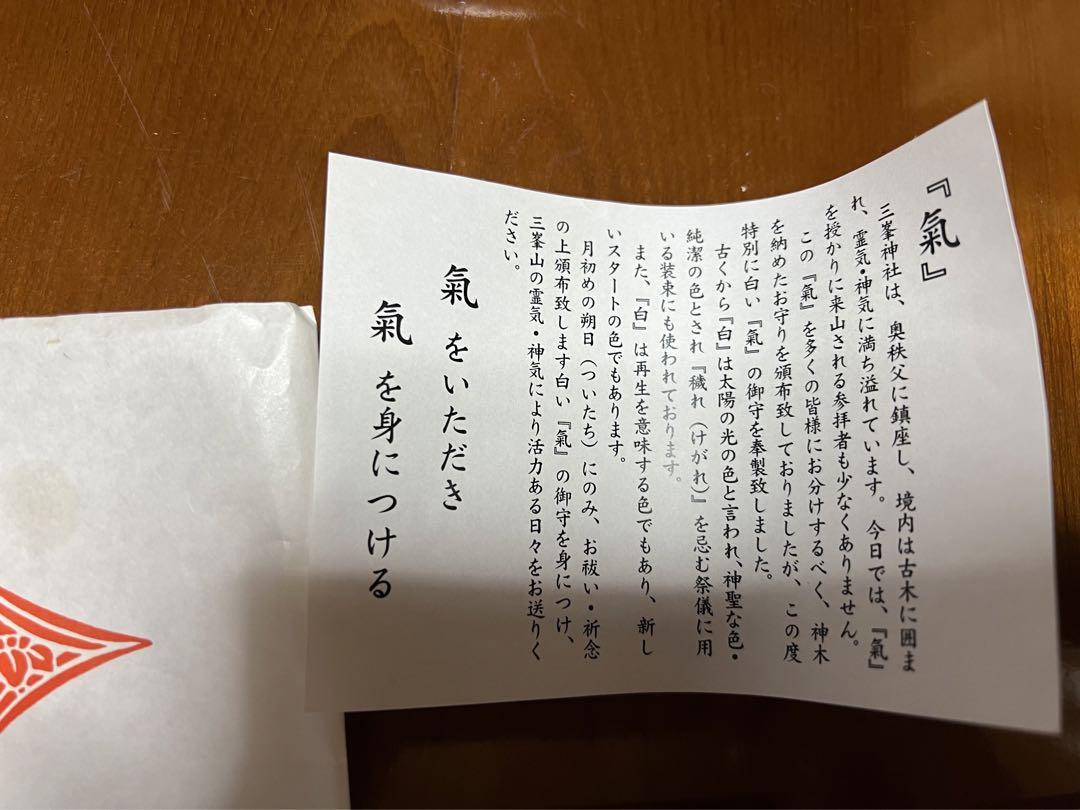 『氣』
三峯神社は、奥秩父に鎮座し、境内は古木に囲ま
れ、霊気・神気に満ち溢れています。今日では、『氣』
を授かりに来山される参拝者も少なくありません。
この『氣』を多くの皆様にお分けするべく、神木
を納めたお守りを頒布致しておりましたが、この度
特別に白い『氣』の御守を奉製致しました。
古くから『白』は太陽の光の色と言われ、神聖な色・
純潔の色とされ『穢れ（けがれ）』を忌む祭儀に用
いる装束にも使われております。
また、『白』は再生を意味する色でもあり、新し
いスタートの色でもあります。
月初めの朔日（ついたち）にのみ、お祓い・祈念
の上頒布致します白い『氣』の御守を身につけ、
三峯山の霊気・神気により活力ある日々をお送りく
ださい。
氣をいただき
氣を身につける